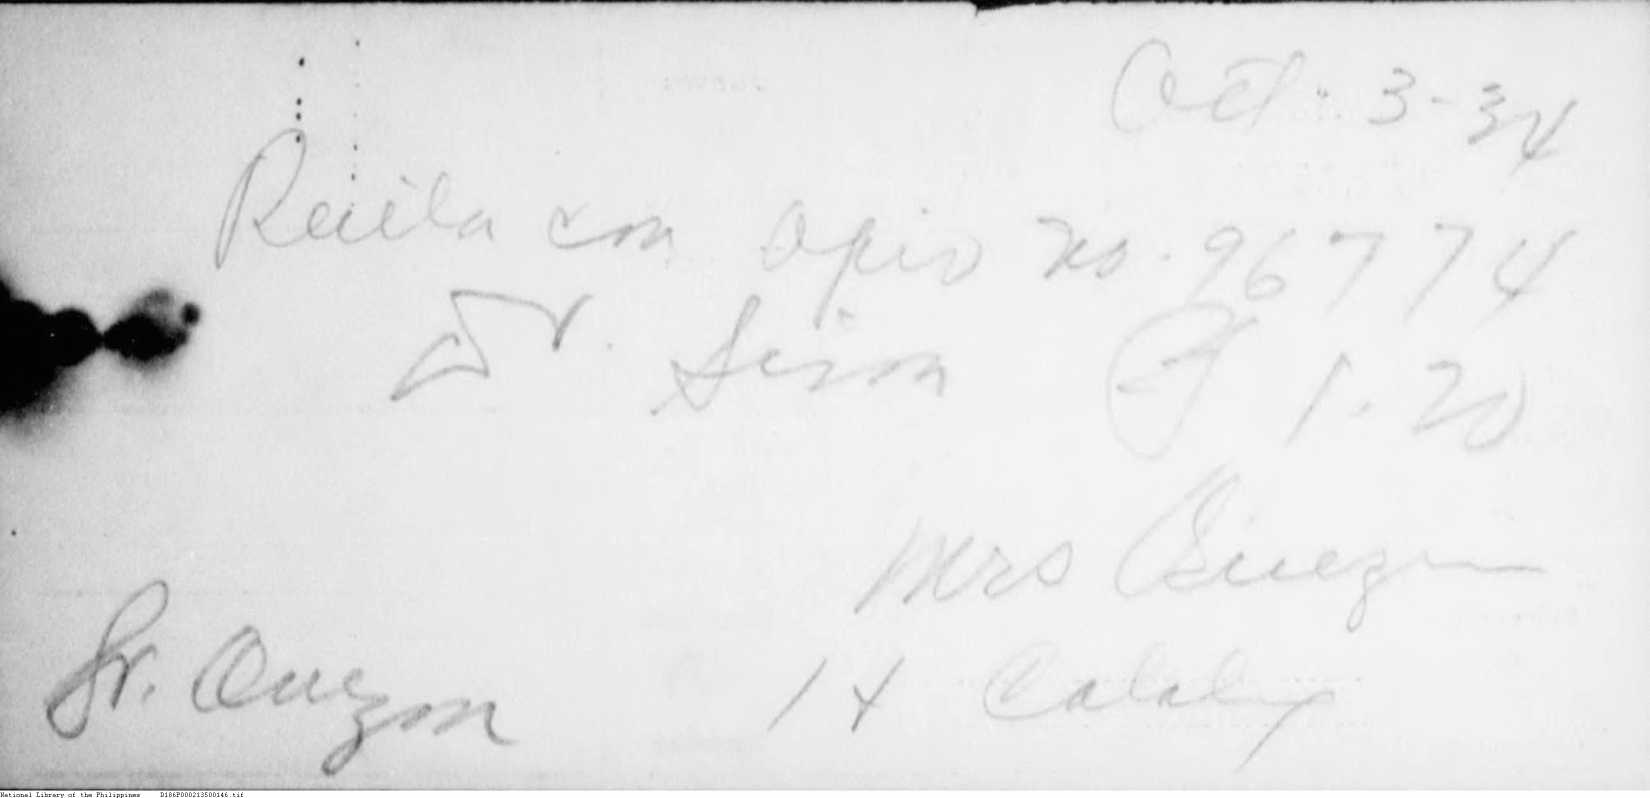 Oct. 3-34
Receta con opio no. 96774
Dr. Sison ₱ 1.20
Mrs Quezon
Sr. Quezon 14 Calaba
National Library of the Philippines D186P000213500146.tif